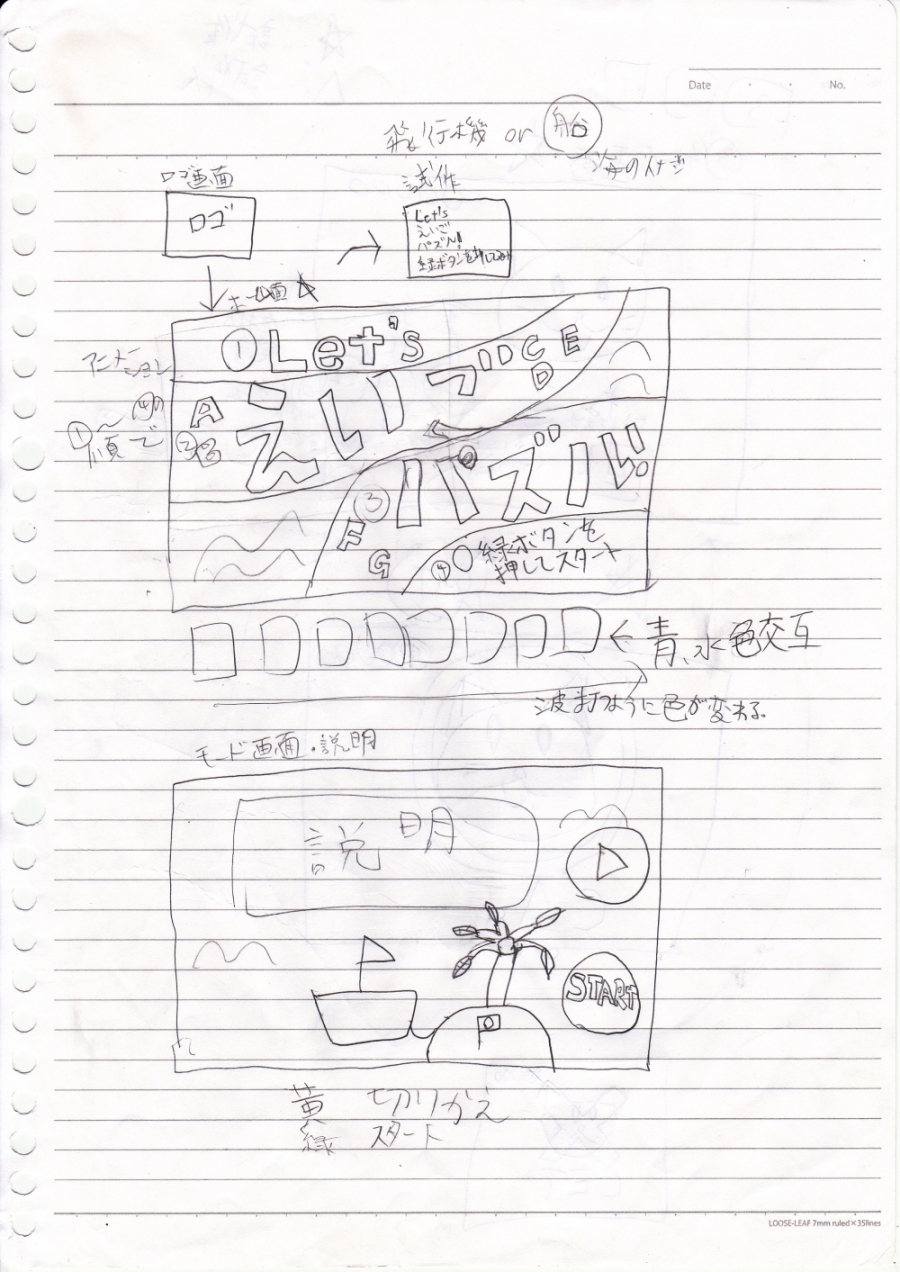 Date ・ ・ No.
飛行機 or 船
海のイメージ
ロゴ画面
ロゴ
試作
Let's
えいご
パズル!
緑ボタンを押してスタート
ホーム画面 ☆
アニメーション
①〜④の
順で
① Let's
A ② B えいご C D E
③ パズル
F G
④ 緑ボタンを
押してスタート
← 青、水色交互
波打つように色が変わる。
モード画面・説明
説明
START
P
黄 切りかえ
緑 スタート
LOOSE-LEAF 7mm ruled×35lines